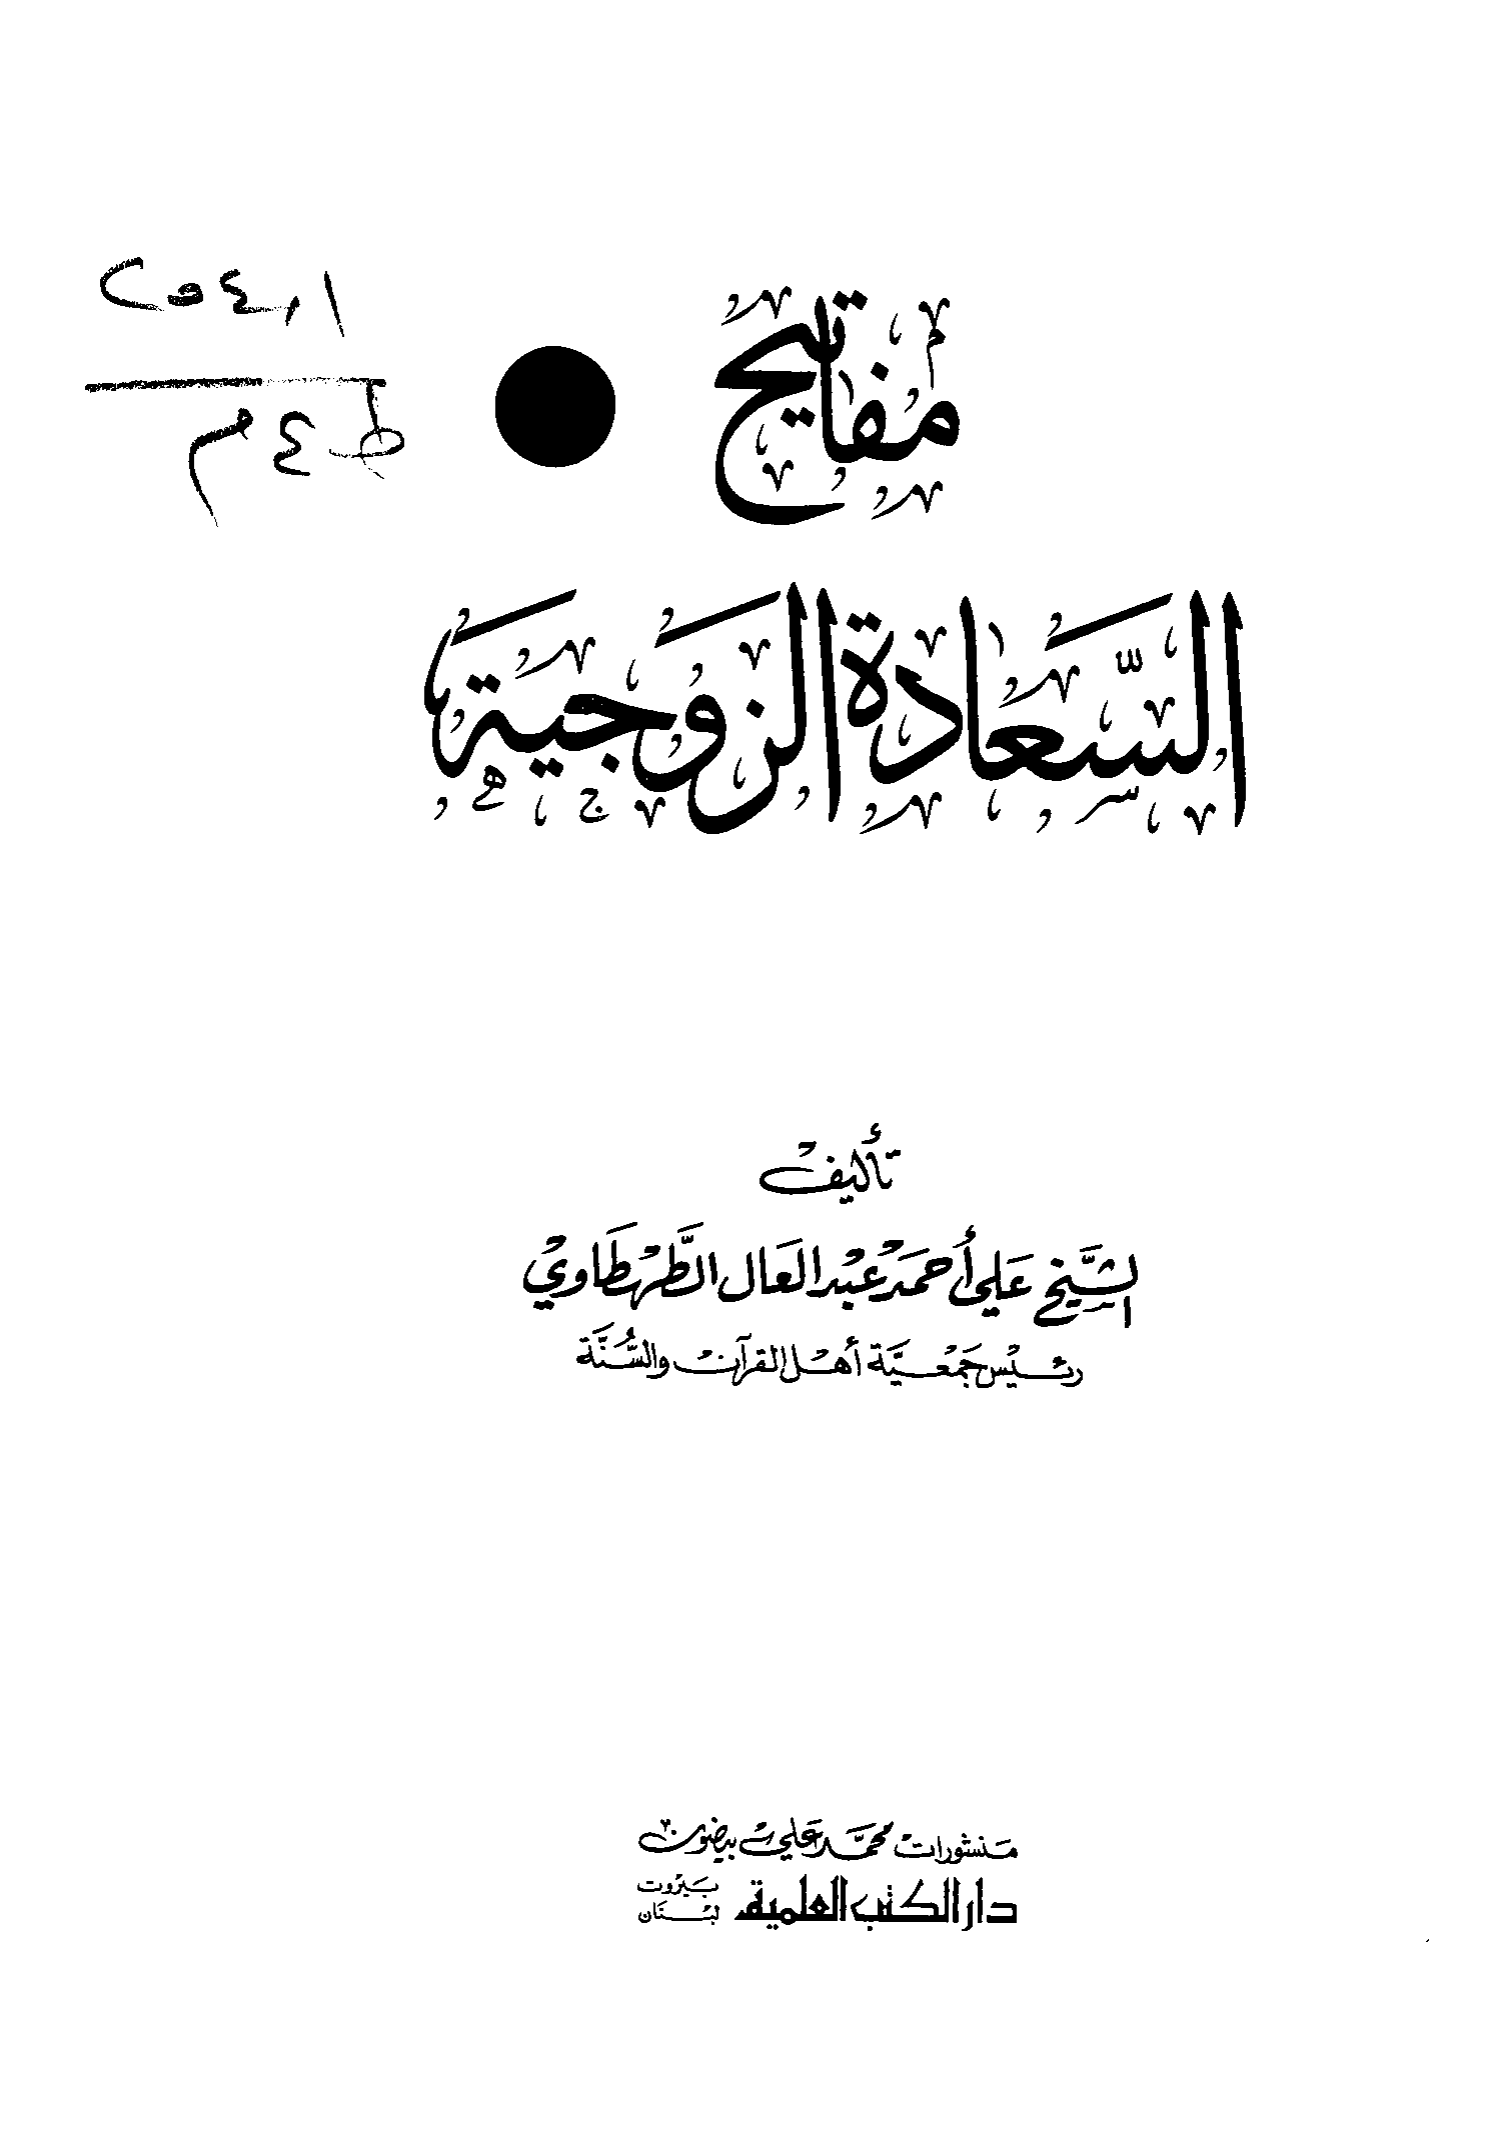 مفاتيح
السَّعَادة الزوجية
تأليف
الشَّيْخ عَلي أحمَد عَبْد العَال الطَّهْطَاوي
رئيس جَمعيَّة أهل القرآن والسُّنَّة
منشورات محمَّد عَلي بيضون
دار الكتب العلمية
بيروت
لبنان
ط ع م